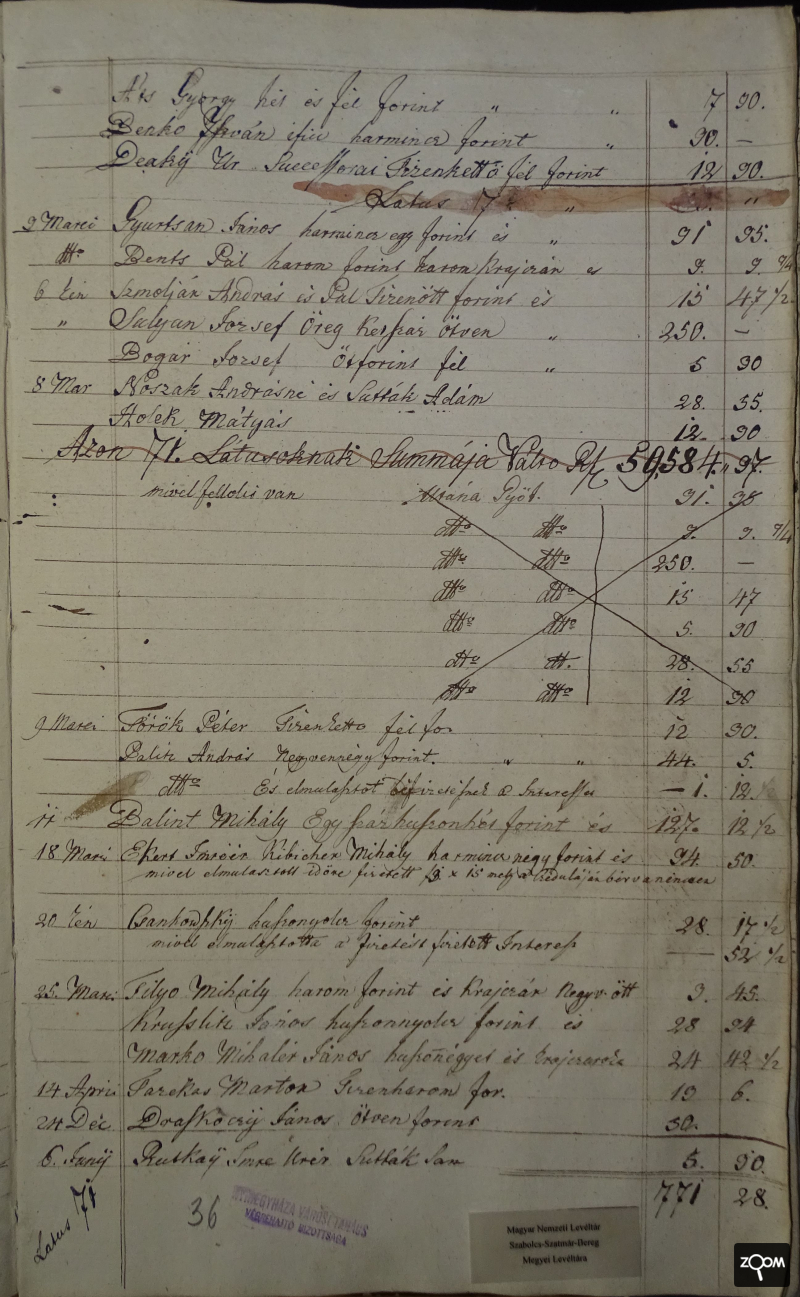 Áts György hét és fél forint " " 7 30.
Benko István ifiu harmincz forint " 30. —
Deákÿ Ur Successorai Tizenkettő fél forint 12 30.
Latus "
9 Marci Gyurtsan János harmincz egy forint és " 31 35.
dtto Bents Pál harom forint harom Krajczár 3. 3.
6 Kán Szmolján András és Pál Tizenött forint és 15 47 ½
" Sulyan Jozsef Öreg Kétszáz ötven " 250. —
Bogár Jozsef Ötforint fél " 5 30
8 Mar Noszak Andrásné és Sutták Ádám 28. 55.
Holek Mátyás 12. 30
Azon 71. Latusoknak Summája Valto Rf 59,584. 37.
mivel fellolis van Utána Gyöt. 31. 38
dtto dtto 3. 3.
dtto dtto 250. —
dtto dtto 15 47
dtto dtto 5. 30
dtto dtt. 28. 55
dtto dtto 12 30
9 Marci Török Péter Tizenketto fél fo. 12 30.
Palik András Negyvennégy forint. " " 44. 5.
dtto És elmulasztot béfizetésnek Interesse — 1. 12
11 Balint Mihály Egy száz huszonhét forint és 127. 12 ½
18 Marci Ekert Imréér Kibicher Mihály harmincz negy forint és 34. 50.
mivel elmulasztott időre fizetett x 15
20 Kán Csankowszkÿ huszonyolcz forint 28. 17 ½
mivel elmulasztotta a fizetést fizetett Interess — 52 ½
25. Marci Filyo Mihály harom forint és Krajczár Negyv. ött 3. 45.
Krusslik János huszonnyolcz forint és 28 34
Marko Mihalér János huszonnégyet és 24 42 ½
14 Apri Fazekas Marton Tizenharom for. 13 6.
24 Déc Draskóczÿ János. Ötven forint 50.
6. Junÿ Rutkaÿ Imre Urér Sutták Sam 5. 30.
771 28.
Latus 71
36
NYIREGYHÁZA VÁROSI TANÁCS
VÉGREHAJTÓ BIZOTTSÁGA
Magyar Nemzeti Levéltár
Szabolcs-Szatmár-Bereg
Megyei Levéltára
ZOOM